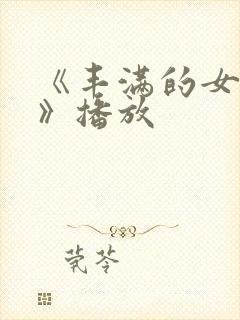 《丰满的女
》播放
茺苓